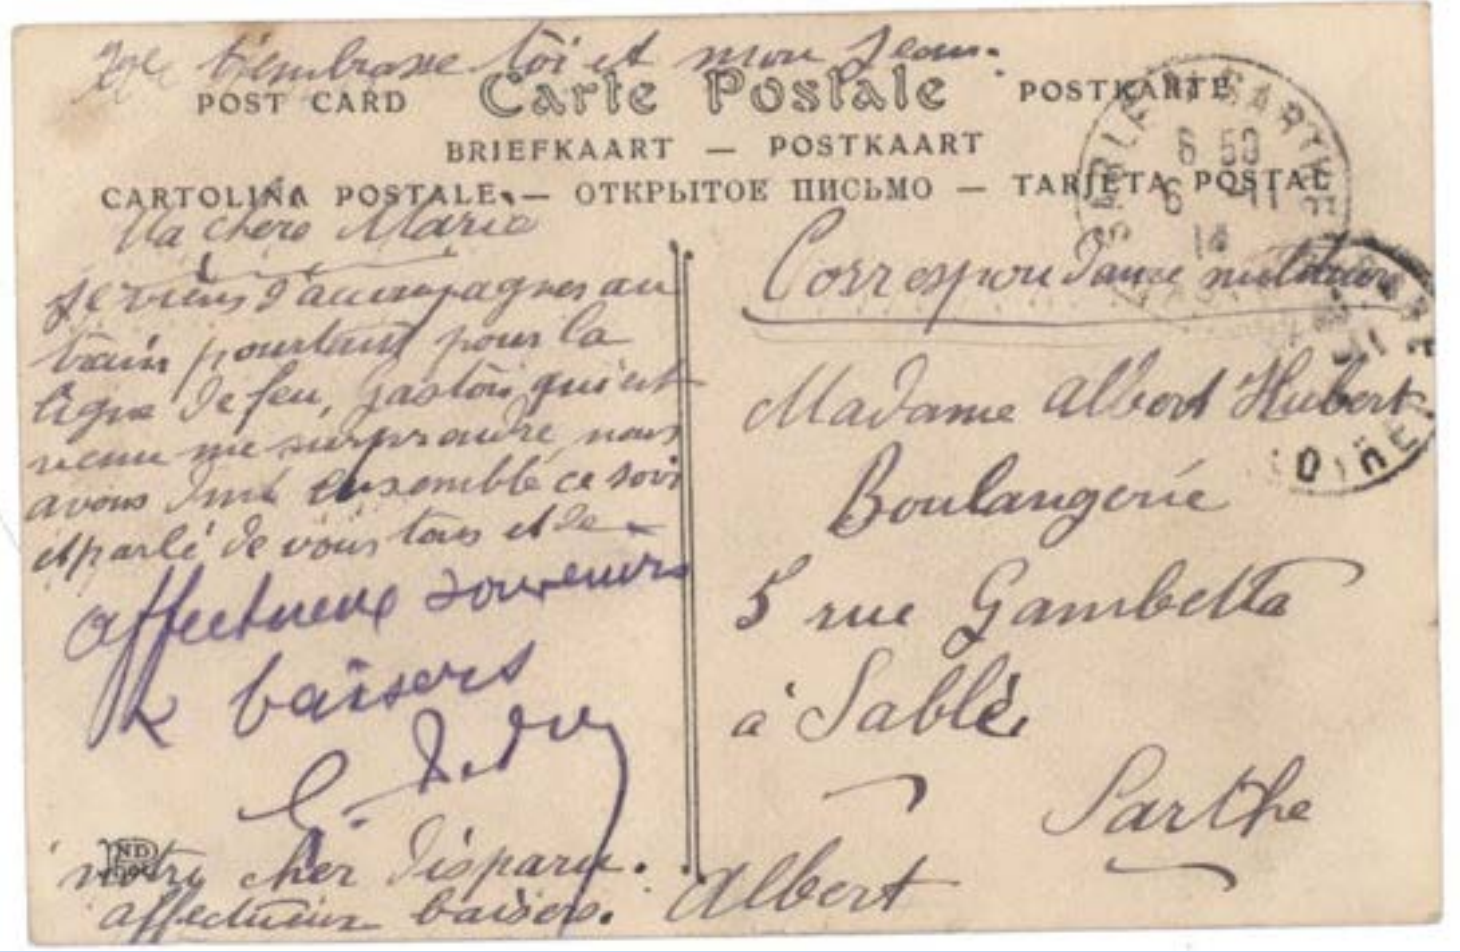 t'embrasse toi et mon Jean.
POST CARD Carte Postale POSTKARTE
BRIEFKAART — POSTKAART
CARTOLINA POSTALE — ОТКРЫТОЕ ПИСЬМО — TARJETA POSTAL
Ma chère Marie
Je viens d'accompagner au
train pourtant pour la
ligne de feu, Gaston qui est
venu me surprendre, nous
avons diné ensemble ce soir
et parlé de vous tous et de
affectueux souvenirs
& baisers
notre cher disparu.
affectueux baisers. Albert
ND
Correspondance militaire
Madame Albert Hubert
Boulangerie
5 rue Gambetta
à Sablé
Sarthe
SARTHE
6 50
6 -11
14